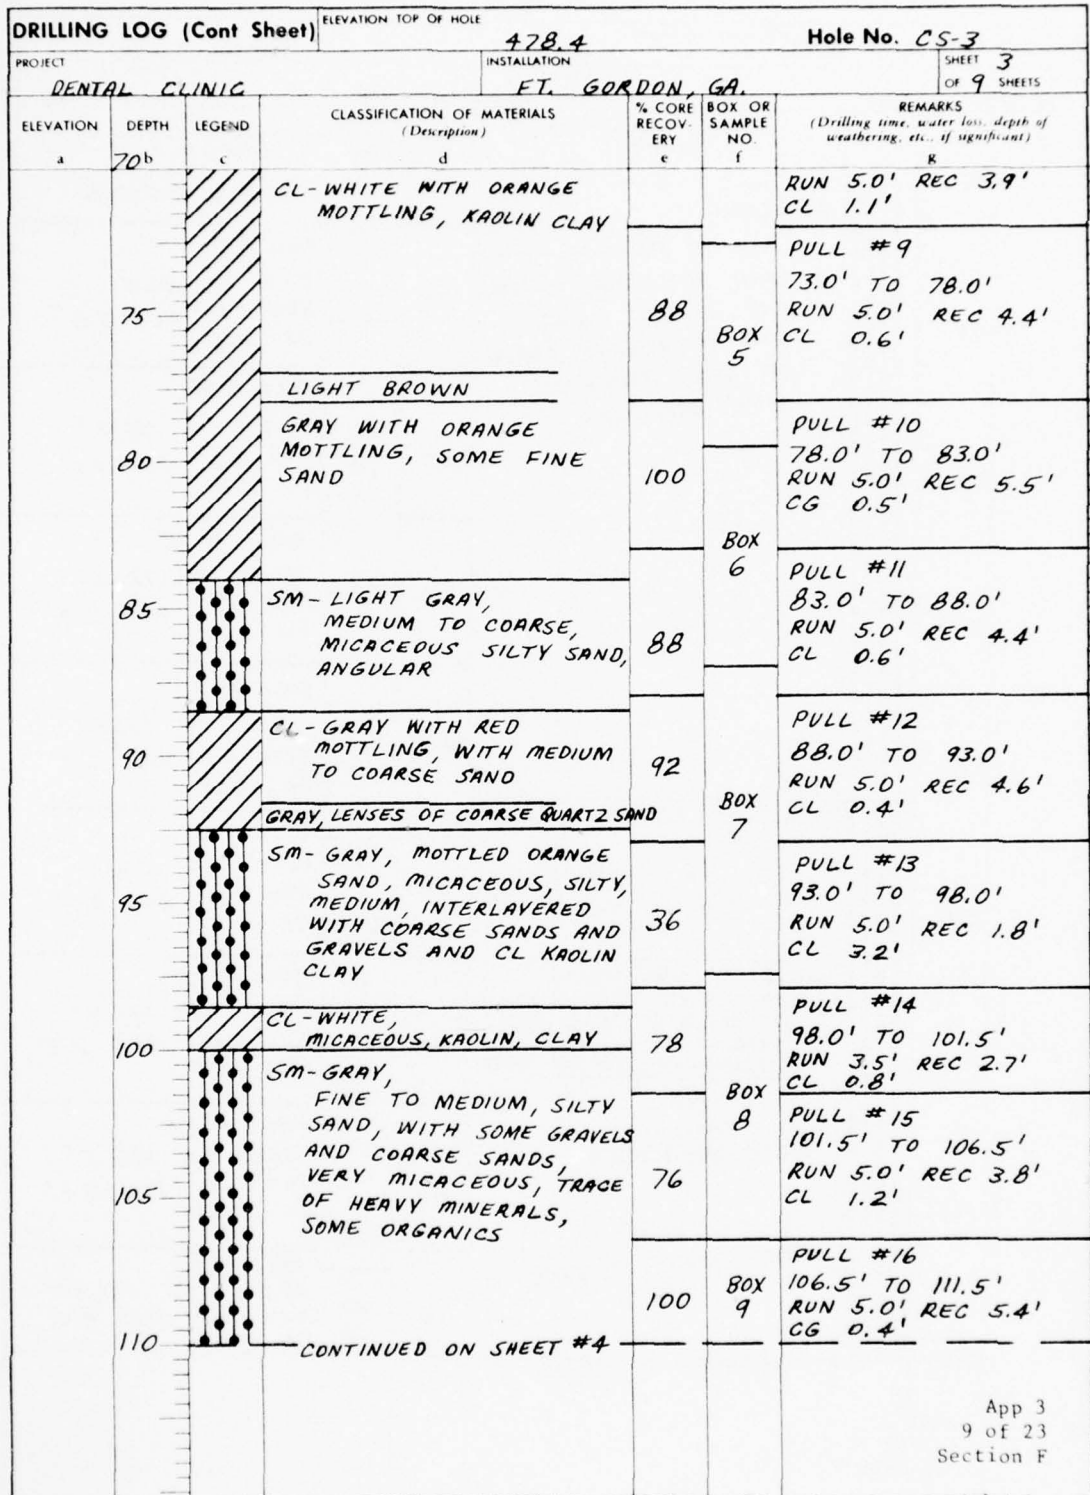 DRILLING LOG (Cont Sheet)
ELEVATION TOP OF HOLE
478.4
Hole No. CS-3
PROJECT
DENTAL CLINIC
INSTALLATION
FT. GORDON, GA.
SHEET 3
OF 9 SHEETS
ELEVATION
a
DEPTH
70 b
LEGEND
c
CLASSIFICATION OF MATERIALS
(Description)
d
% CORE
RECOV-
ERY
e
BOX OR
SAMPLE
NO.
f
REMARKS
(Drilling time, water loss, depth of
weathering, etc., if significant)
g
CL-WHITE WITH ORANGE
MOTTLING, KAOLIN CLAY
RUN 5.0' REC 3.9'
CL 1.1'
75
88
BOX
5
PULL #9
73.0' TO 78.0'
RUN 5.0' REC 4.4'
CL 0.6'
LIGHT BROWN
GRAY WITH ORANGE
MOTTLING, SOME FINE
SAND
80
100
BOX
6
PULL #10
78.0' TO 83.0'
RUN 5.0' REC 5.5'
CG 0.5'
85
SM- LIGHT GRAY,
MEDIUM TO COARSE,
MICACEOUS SILTY SAND,
ANGULAR
88
PULL #11
83.0' TO 88.0'
RUN 5.0' REC 4.4'
CL 0.6'
90
CL-GRAY WITH RED
MOTTLING, WITH MEDIUM
TO COARSE SAND
92
BOX
7
PULL #12
88.0' TO 93.0'
RUN 5.0' REC 4.6'
CL 0.4'
GRAY, LENSES OF COARSE QUARTZ SAND
95
SM- GRAY, MOTTLED ORANGE
SAND, MICACEOUS, SILTY,
MEDIUM, INTERLAYERED
WITH COARSE SANDS AND
GRAVELS AND CL KAOLIN
CLAY
36
PULL #13
93.0' TO 98.0'
RUN 5.0' REC 1.8'
CL 3.2'
100
CL-WHITE,
MICACEOUS, KAOLIN, CLAY
78
BOX
8
PULL #14
98.0' TO 101.5'
RUN 3.5' REC 2.7'
CL 0.8'
105
SM-GRAY,
FINE TO MEDIUM, SILTY
SAND, WITH SOME GRAVELS
AND COARSE SANDS,
VERY MICACEOUS, TRACE
OF HEAVY MINERALS,
SOME ORGANICS
76
PULL #15
101.5' TO 106.5'
RUN 5.0' REC 3.8'
CL 1.2'
100
BOX
9
PULL #16
106.5' TO 111.5'
RUN 5.0' REC 5.4'
CG 0.4'
110
CONTINUED ON SHEET #4
App 3
9 of 23
Section F